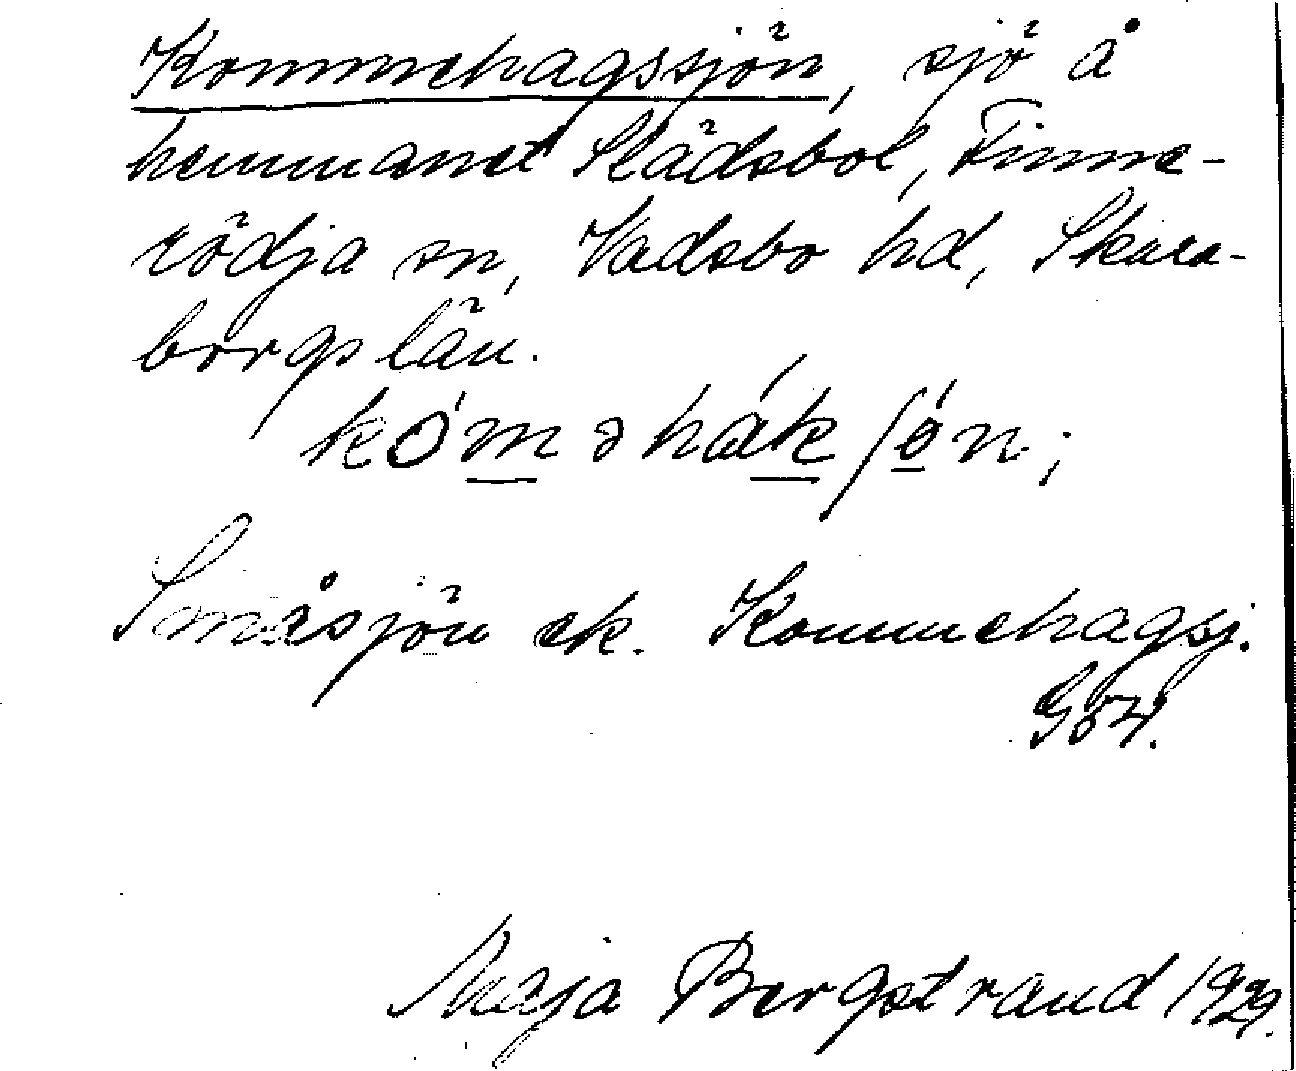 Kommehagssjön, sjö å
hemmanet Slädsbol, Finne-
rödja sn, Vadsbo hd, Skara-
borgs län.
kómǝhákʃȯ́n;
Småsjön ek. Kommehagsj.
Maja Bergstrand 1929.